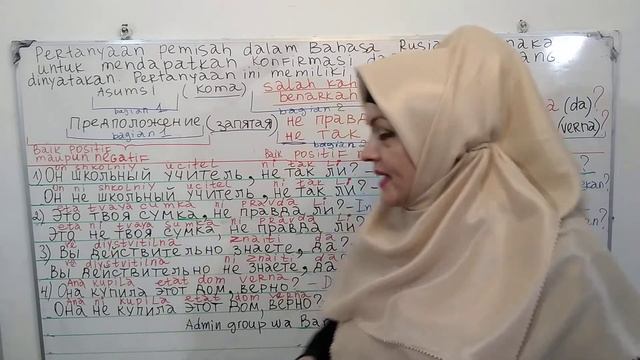 Pertanyaan pemisah dalam Bahasa Rusia
untuk mendapatkan konfirmasi
dinyatakan. Pertanyaan ini memiliki
Asumsi (koma) salah kah
bagian 1 benarkah (da)?
Предположение (запятая) не правда (verna)?
bagian 1 не так
Baik positif Baik positif
maupun negatif
on shkolniy ucitel ni tak li
1) Он школьный учитель, не так ли?
on ni shkolniy ucitel ni tak li
Он не школьный учитель, не так ли?
eta tvaya sumka ni pravda li
2) Это твоя сумка, не правда ли?
eta ni tvaya sumka ni pravda li
Это не твоя сумка, не правда ли?
diystvitilna znaiti da
3) Вы действительно знаете, да?
diystvitilna ni znaiti da
Вы действительно не знаете, да
Ana kupila etat dom verna
4) Она купила этот дом, верно?
Ana ni kupila etat dom verna
Она не купила этот дом, верно?
Admin group wa